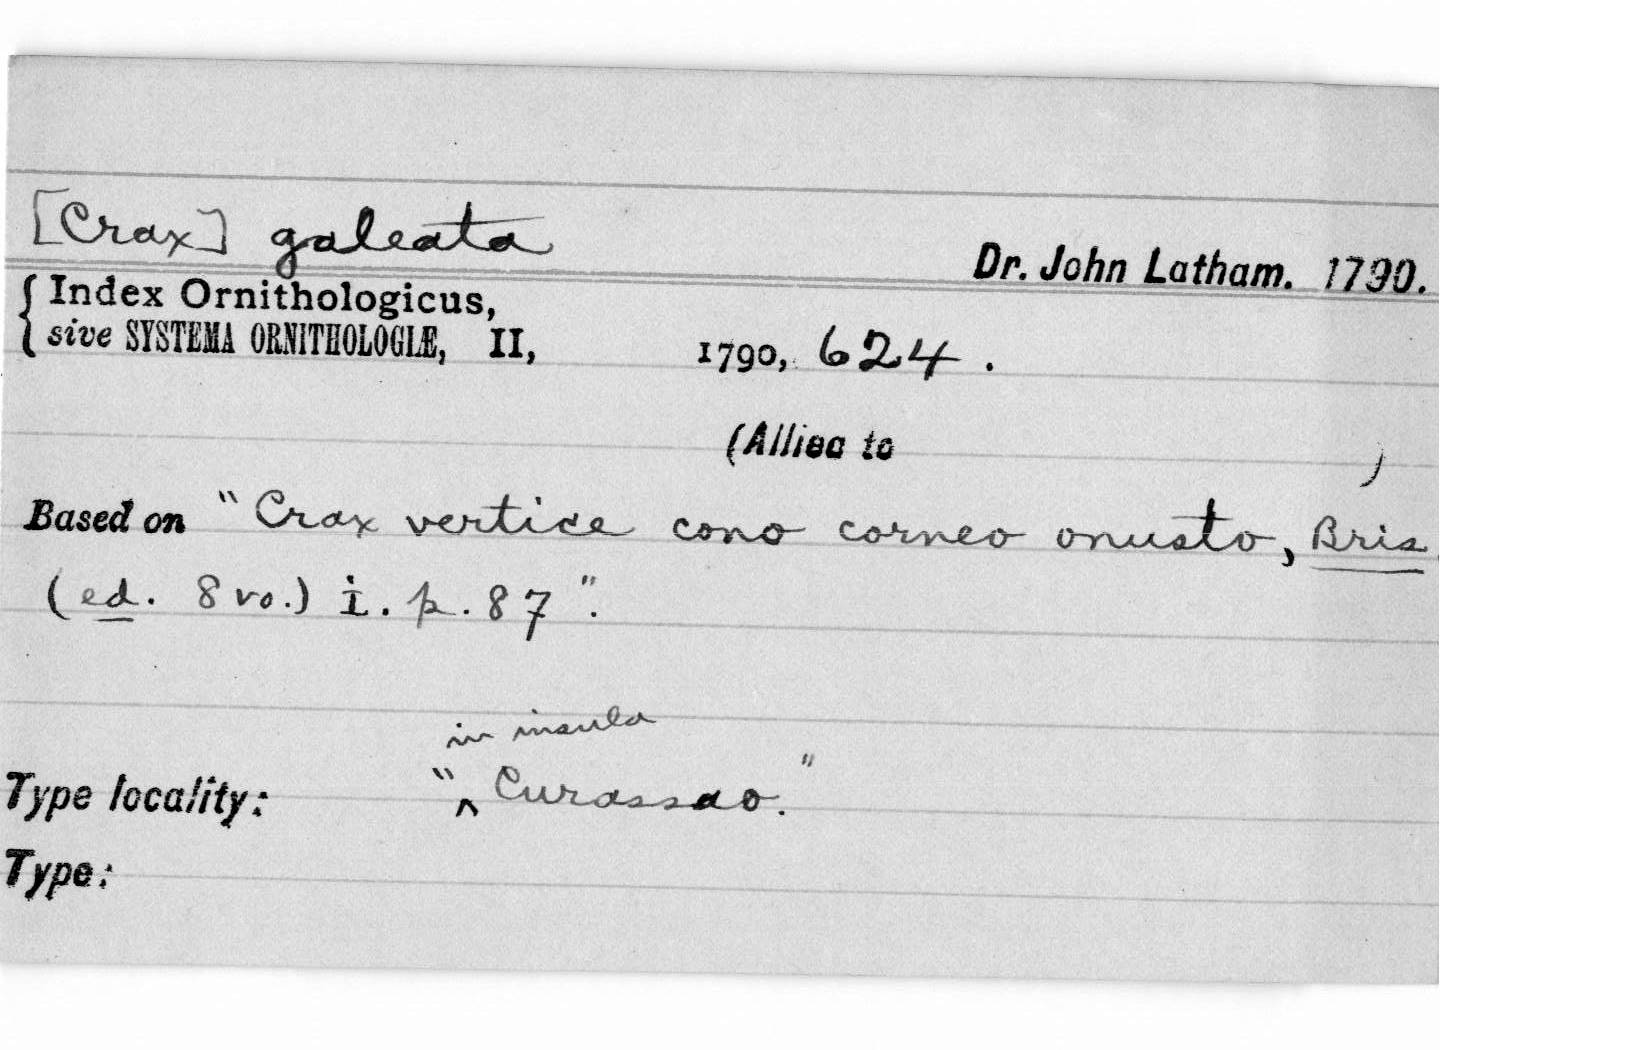 [Crax] galeata
Dr. John Latham. 1790.
Index Ornithologicus,
sive SYSTEMA ORNITHOLOGIÆ, II, 1790, 624.
(Allied to )
Based on "Crax vertice cono corneo onusto, Bris.
(ed. 8vo.) i. p. 87".
in insula
Type locality: "‸ Curassao."
Type: